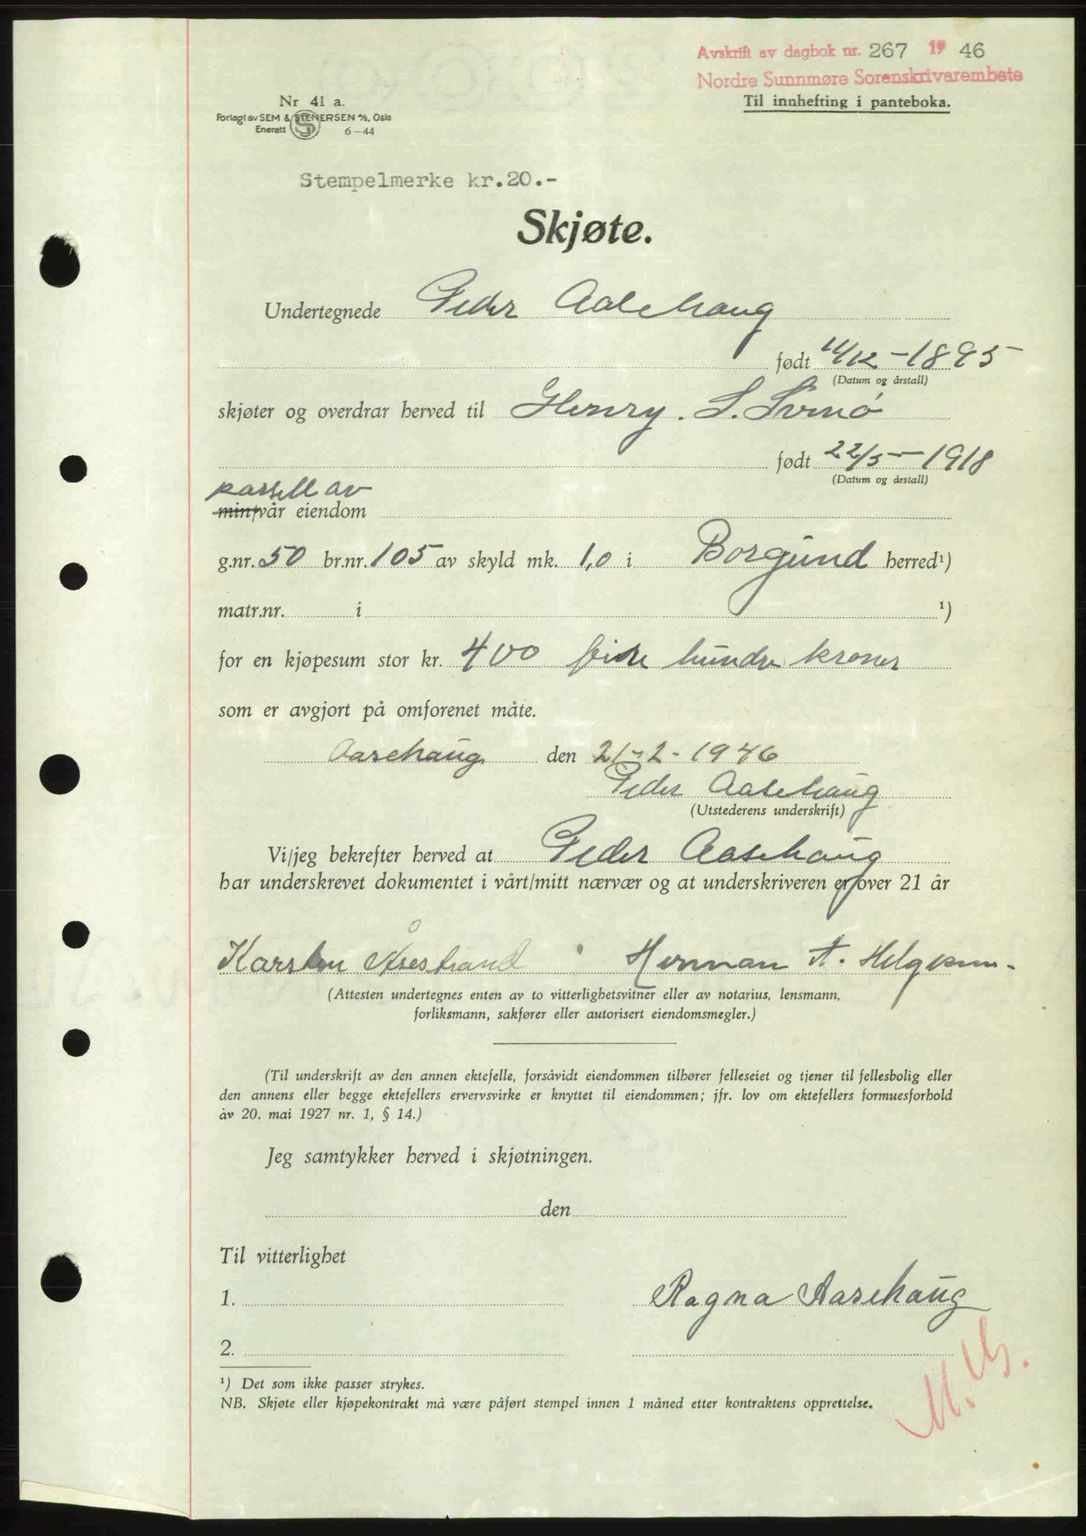 Avskrift av dagbok nr. 267 19 46
Nordre Sunnmøre Sorenskrivarembete
Til innhefting i panteboka.
Nr 41 a.
Forlagt av SEM & STENERSEN A/S, Oslo
Enerett 6-44
Stempelmerke kr.20.-
Skjøte.
Undertegnede Peder Aasehaug
født 14/12-1895
(Datum og årstall)
skjøter og overdrar herved til Henry. S.
født 22/5-1918
(Datum og årstall)
parsell av
min/vår eiendom
g.nr. 50 br.nr. 105 av skyld mk. 1,0 i Borgund herred¹)
matr.nr. i ¹)
for en kjøpesum stor kr. 400 fire hundre kroner
som er avgjort på omforenet måte.
Aasehaug den 21-2-1946
Peder Aasehaug
(Utstederens underskrift)
Vi/jeg bekrefter herved at Peder Aasehaug
har underskrevet dokumentet i vårt/mitt nærvær og at underskriveren er over 21 år
Karsten Åsestrand Herman A.
(Attesten undertegnes enten av to vitterlighetsvitner eller av notarius, lensmann,
forliksmann, sakfører eller autorisert eiendomsmegler.)
(Til underskrift av den annen ektefelle, forsåvidt eiendommen tilhører felleseiet og tjener til fellesbolig eller
den annens eller begge ektefellers ervervsvirke er knyttet til eiendommen; jfr. lov om ektefellers formuesforhold
av 20. mai 1927 nr. 1, § 14.)
Jeg samtykker herved i skjøtningen.
den
Til vitterlighet
1. Ragna Aasehaug
2.
¹) Det som ikke passer strykes.
NB. Skjøte eller kjøpekontrakt må være påført stempel innen 1 måned etter kontraktens opprettelse.